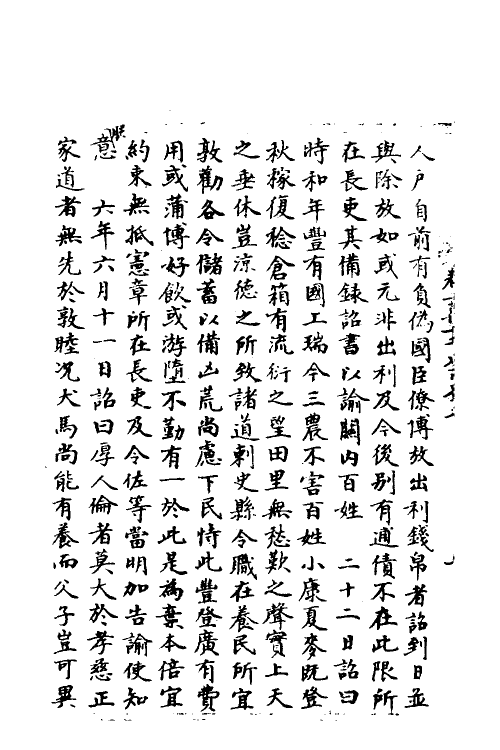 人户自前有負偽國臣僚傅放出利錢帛者詔到日並
與除放如或元非出利及今後别有逋債不在此限所
在長吏其備録詔書以諭關内百姓　二十二日詔曰
時和年豐有國工瑞今三農不害百姓小康夏麥既登
秋稼復稔倉箱有流衍之望田里無愁歎之聲實上天
之垂休豈涼德之所致諸道刺史縣令職在養民所宜
敦勸各令儲蓄以備凶荒尚慮下民恃此豐登廣有費
用或蒲博好飲或游墮不勤有一於此是為棄本倍宜
約束無抵憲章所在長吏及令佐等當明加告諭使知
朕意　六年六月十一日詔曰厚人倫者莫大於孝慈正
家道者無先於敦睦况犬馬尚能有養而父子豈可異